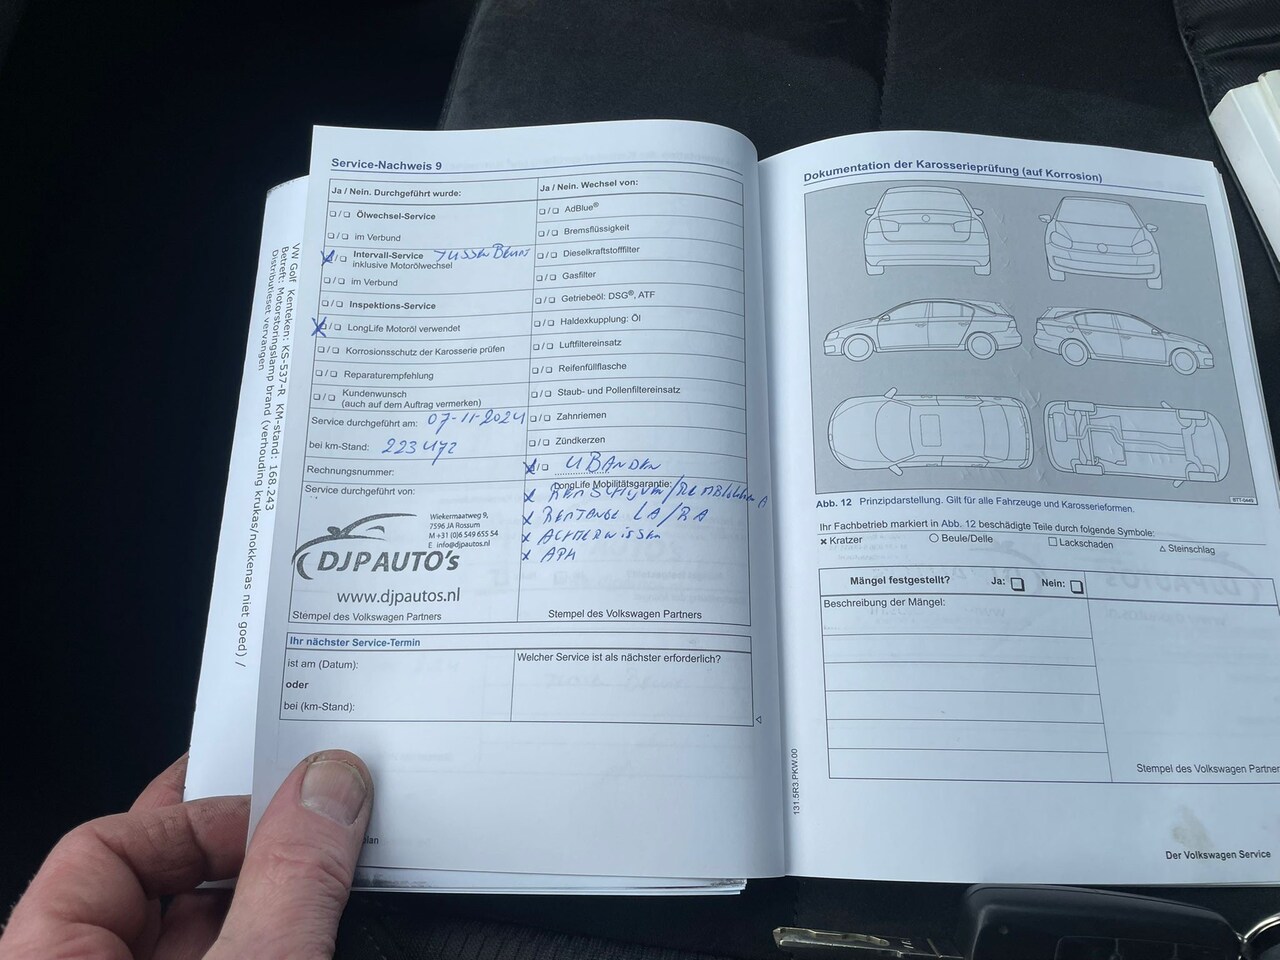 VW Golf Kenteken: KS-537-R KM-stand: 168.243
Betreft: Motorstoringslamp brand (verhouding krukas/nokkenas niet goed) /
Distributieset vervangen
Service-Nachweis 9
Ja / Nein. Durchgeführt wurde:
Ölwechsel-Service
im Verbund
Intervall-Service TUSSEN BEURT
inklusive Motorölwechsel
im Verbund
Inspektions-Service
LongLife Motoröl verwendet
Korrosionsschutz der Karosserie prüfen
Reparaturempfehlung
Kundenwunsch
(auch auf dem Auftrag vermerken)
Service durchgeführt am: 07-11-2024
bei km-Stand: 223472
Rechnungsnummer:
Service durchgeführt von:
Wiekermaatweg 9,
7596 JA Rossum
M +31 (0)6 549 655 54
E info@djpautos.nl
DJPAUTO's
www.djpautos.nl
Stempel des Volkswagen Partners
Ja / Nein. Wechsel von:
AdBlue®
Bremsflüssigkeit
Dieselkraftstofffilter
Gasfilter
Getriebeöl: DSG®, ATF
Haldexkupplung: Öl
Luftfiltereinsatz
Reifenfüllflasche
Staub- und Pollenfiltereinsatz
Zahnriemen
Zündkerzen
x 4 BANDEN
LongLife Mobilitätsgarantie:
x REMSCHIJVEN/REMBLOKKEN A
x REMTANGE LA/RA
x ACHTERWISSER
x APK
Stempel des Volkswagen Partners
Ihr nächster Service-Termin
ist am (Datum):
oder
bei (km-Stand):
Welcher Service ist als nächster erforderlich?
plan
Dokumentation der Karosserieprüfung (auf Korrosion)
B7T-0449
Abb. 12 Prinzipdarstellung. Gilt für alle Fahrzeuge und Karosserieformen.
Ihr Fachbetrieb markiert in Abb. 12 beschädigte Teile durch folgende Symbole:
x Kratzer
Beule/Delle
Lackschaden
Steinschlag
Mängel festgestellt? Ja: Nein:
Beschreibung der Mängel:
Stempel des Volkswagen Partner
131.5R3.PKW.00
Der Volkswagen Service